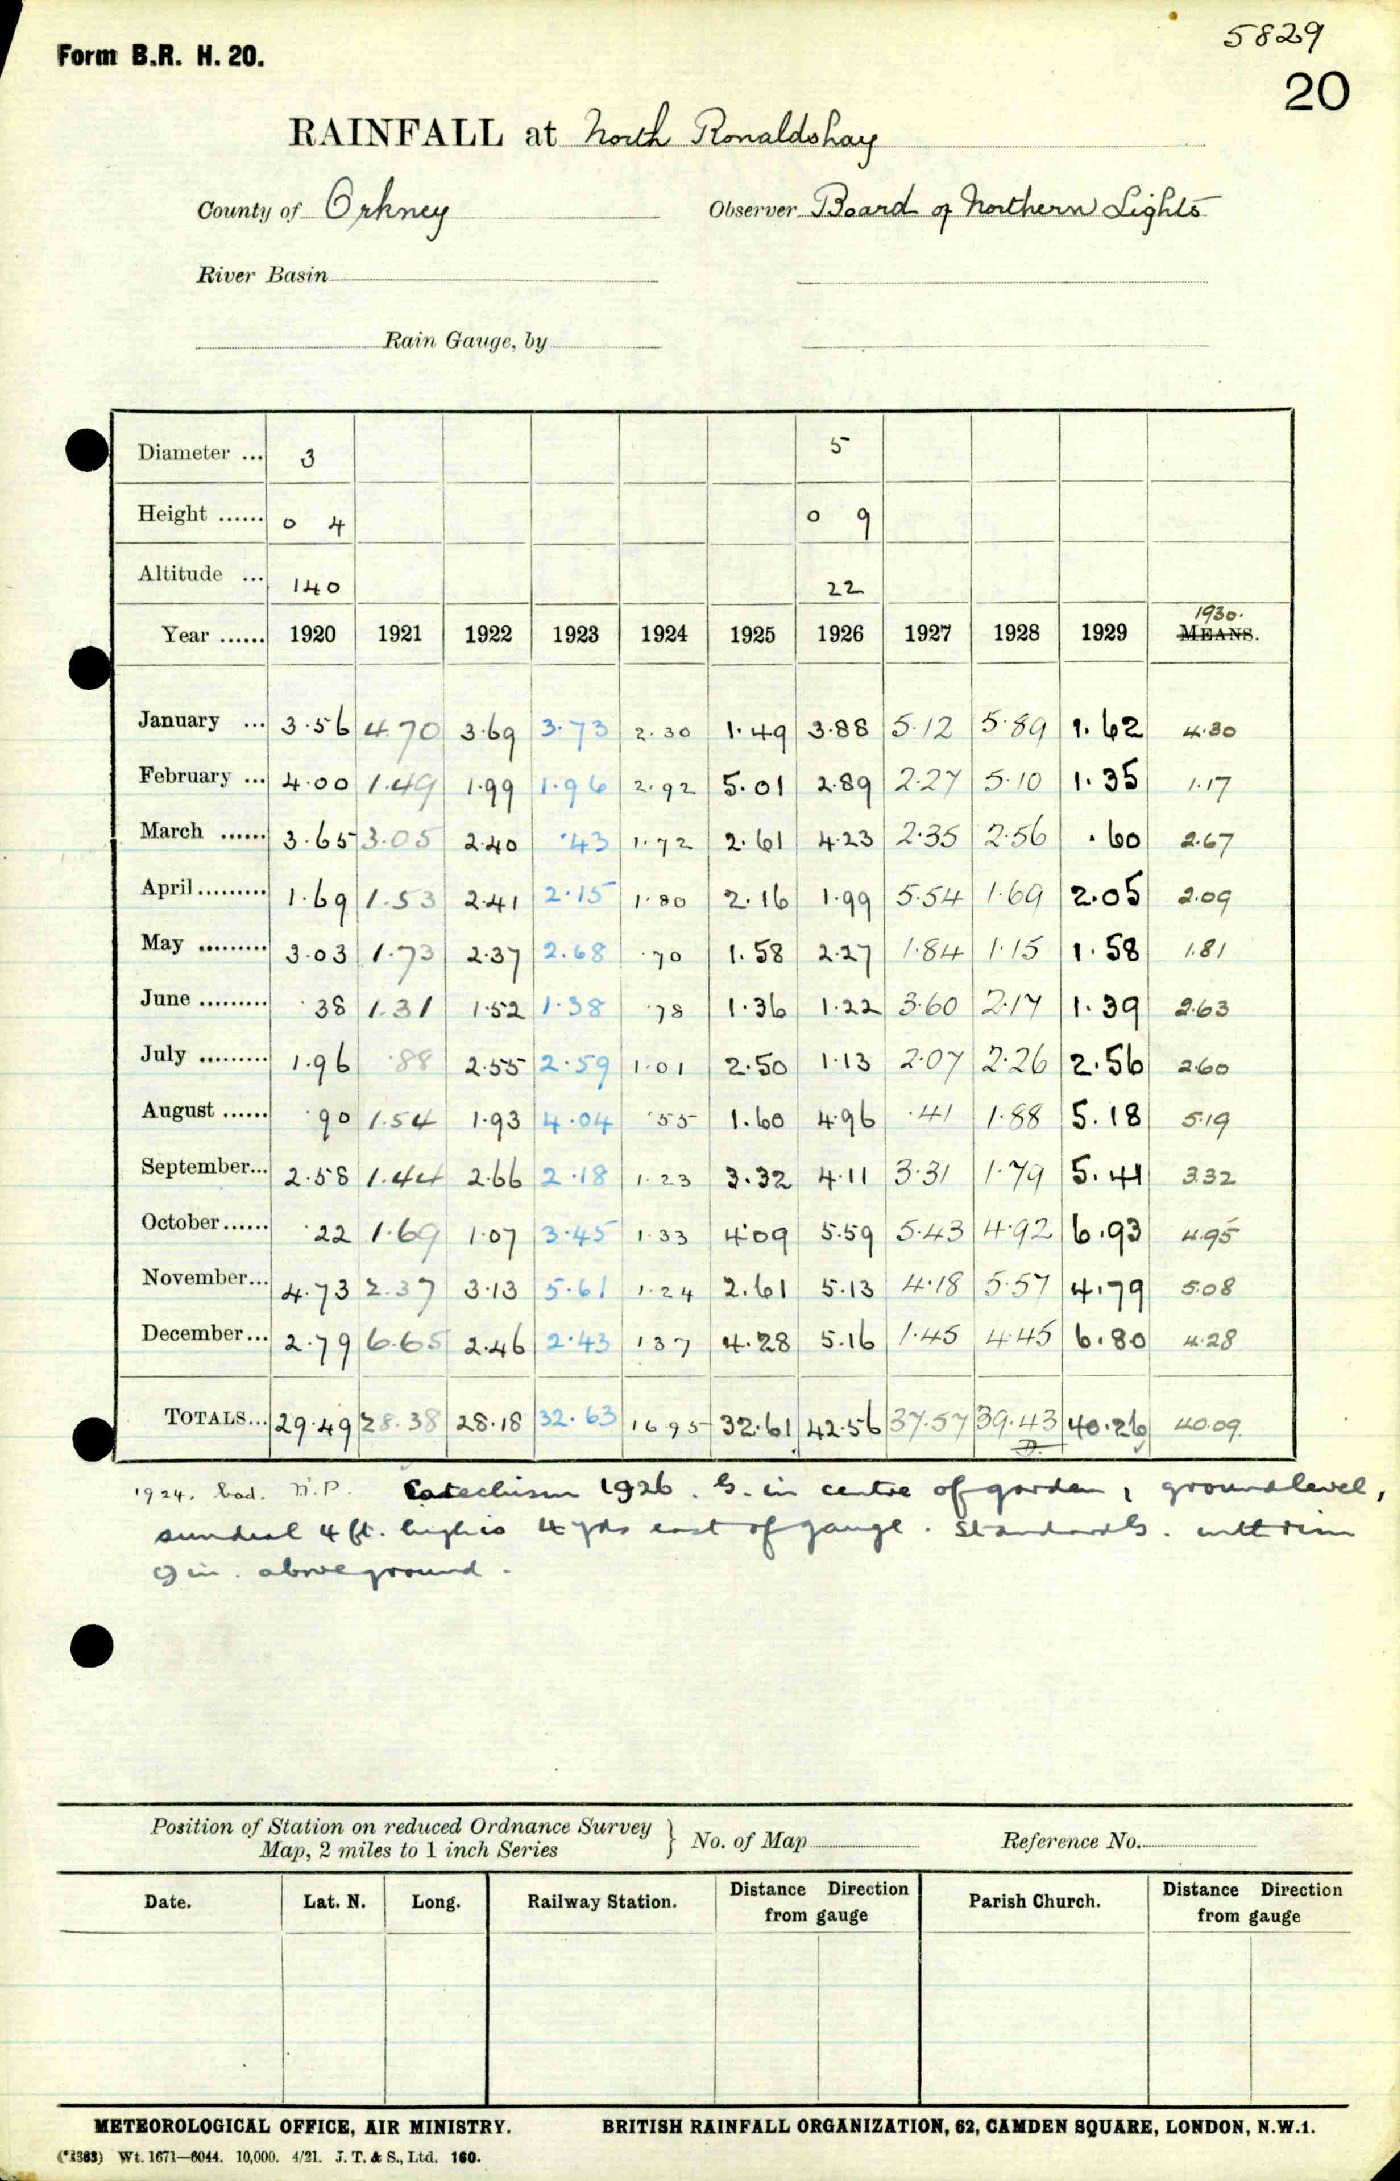 5829
Form B.R. H. 20.
20
RAINFALL at North Ronaldshay
County of Orkney Observer Board of Northern Lights
River Basin
Rain Gauge, by
Diameter ... 3 5
Height ...... 0 4 0 9
Altitude ... 140 22
1930.
Year ...... 1920 1921 1922 1923 1924 1925 1926 1927 1928 1929 MEANS.
January ... 3.56 4.70 3.69 3.73 2.30 1.49 3.88 5.12 5.89 1.62 4.30
February ... 4.00 1.49 1.99 1.96 2.92 5.01 2.89 2.27 5.10 1.35 1.17
March ...... 3.65 3.05 2.40 .43 1.72 2.61 4.23 2.35 2.56 .60 2.67
April ......... 1.69 1.53 2.41 2.15 1.80 2.16 1.99 5.54 1.69 2.05 2.09
May ......... 3.03 1.73 2.37 2.68 .70 1.58 2.27 1.84 1.15 1.58 1.81
June ......... .38 1.31 1.52 1.38 .78 1.36 1.22 3.60 2.17 1.39 2.63
July ......... 1.96 .88 2.55 2.59 1.01 2.50 1.13 2.07 2.26 2.56 2.60
August ...... .90 1.54 1.93 4.04 .55 1.60 4.96 .41 1.88 5.18 5.19
September... 2.58 1.44 2.66 2.18 1.23 3.32 4.11 3.31 1.79 5.41 3.32
October...... .22 1.69 1.07 3.45 1.33 4.09 5.59 5.43 4.92 6.93 4.95
November... 4.73 2.37 3.13 5.61 1.24 2.61 5.13 4.18 5.57 4.79 5.08
December... 2.79 6.65 2.46 2.43 1 37 4.28 5.16 1.45 4.45 6.80 4.28
TOTALS... 29.49 28.38 28.18 32.63 16 95 32.61 42.56 37.57 39.43 40.26 40.09
D.
1924. bad. N.P. Catechism 1926. G. in centre of garden, ground level,
sundial 4 ft. high is 4 yds east of gauge. Standard G. with rim
9 in. above ground.
Position of Station on reduced Ordnance Survey
Map, 2 miles to 1 inch Series } No. of Map Reference No.
Date. Lat. N. Long. Railway Station. Distance Direction from gauge Parish Church. Distance Direction from gauge
METEOROLOGICAL OFFICE, AIR MINISTRY. BRITISH RAINFALL ORGANIZATION, 62, CAMDEN SQUARE, LONDON, N.W.1.
(*1363) Wt. 1671—6044. 10,000. 4/21. J. T. & S., Ltd. 160.